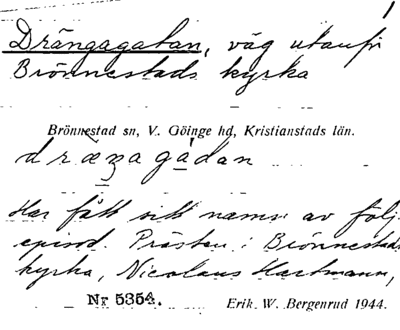 Drängagatan, väg utanför
Brönnestads kyrka
Brönnestad sn, V. Göinge hd, Kristianstads län.
Har fått sitt namn av följ.
episod. Prästen i Brönnestads
kyrka, Nicolaus Hartmann,
Nr 5354. Erik. W. Bergenrud 1944.